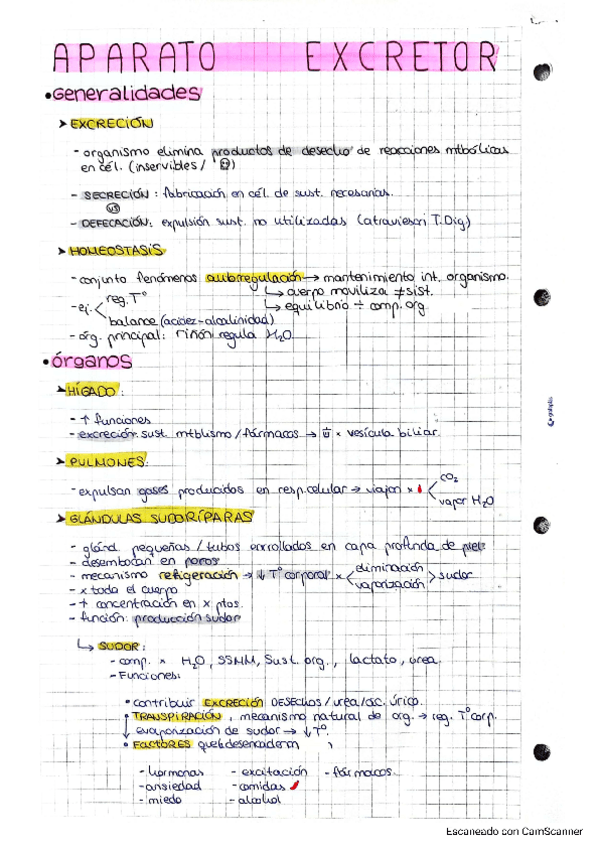 APARATO EXCRETOR
•Generalidades
➤ EXCRECIÓN
- organismo elimina productos de desecho de reacciones mtbólicas
en cél. (inservibles / ☹)
- SECRECIÓN : fabricación en cél. de sust. necesarias.
VS
- DEFECACIÓN: expulsión sust. no utilizadas (atraviesan T.Dig)
➤ HOMEOSTASIS
- conjunto fenómenos autorregulación → mantenimiento int. organismo.
↳ cuerpo moviliza ≠ sist.
↳ equilibrio ÷ comp. org.
- ej. < reg. Tº
balance (acidez-alcalinidad)
- órg. principal: riñón regula H₂O
•órganos
➤ HÍGADO :
- ↑ funciones
- excreción sust. mtblismo / fármacos → × vesícula biliar.
➤ PULMONES:
- expulsan gases producidos en resp.celular → viajan × < CO₂
vapor H₂O
➤ GLÁNDULAS SUDORÍPARAS
- glánd. pequeñas / tubos enrollados en capa profunda de piel
- desembocan en poros
- mecanismo refrigeración → ↓ Tº corporal × < eliminación
vaporización > sudor
- × todo el cuerpo
- + concentración en × ptos.
- función: producción sudor
↳ SUDOR:
- comp. × H₂O, SSMM, Sust. org., lactato, urea.
- Funciones:
• contribuir EXCRECIÓN DESECHOS / urea / ác. úrico.
• TRANSPIRACIÓN, mecanismo natural de org. → reg. Tº corp.
evaporización de sudor → ↓Tº.
• FACTORES que desencadenan
- hormonas - excitación - fármacos.
- ansiedad - comidas
- miedo - alcohol
Escaneado con CamScanner